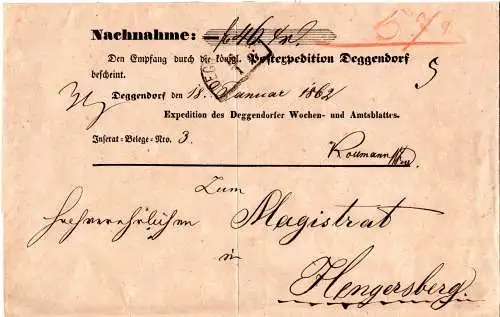 Nachnahme: 46
Den Empfang durch die königl. Postexpedition Deggendorf
bescheint.
5
Deggendorf den 18. Januar 1862
Expedition des Deggendorfer Wochen- und Amtsblattes.
Inserat-Belege-Nro. 3
Zum
Magistrat
in
Hengersberg.